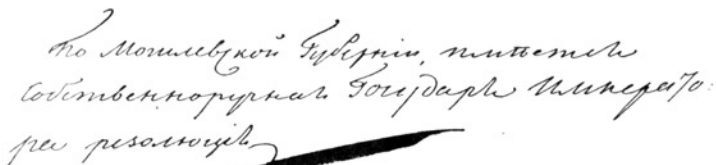 По Могилевской Губерніи, имѣется
Собственноручная Государя Императо:
ра резолюція